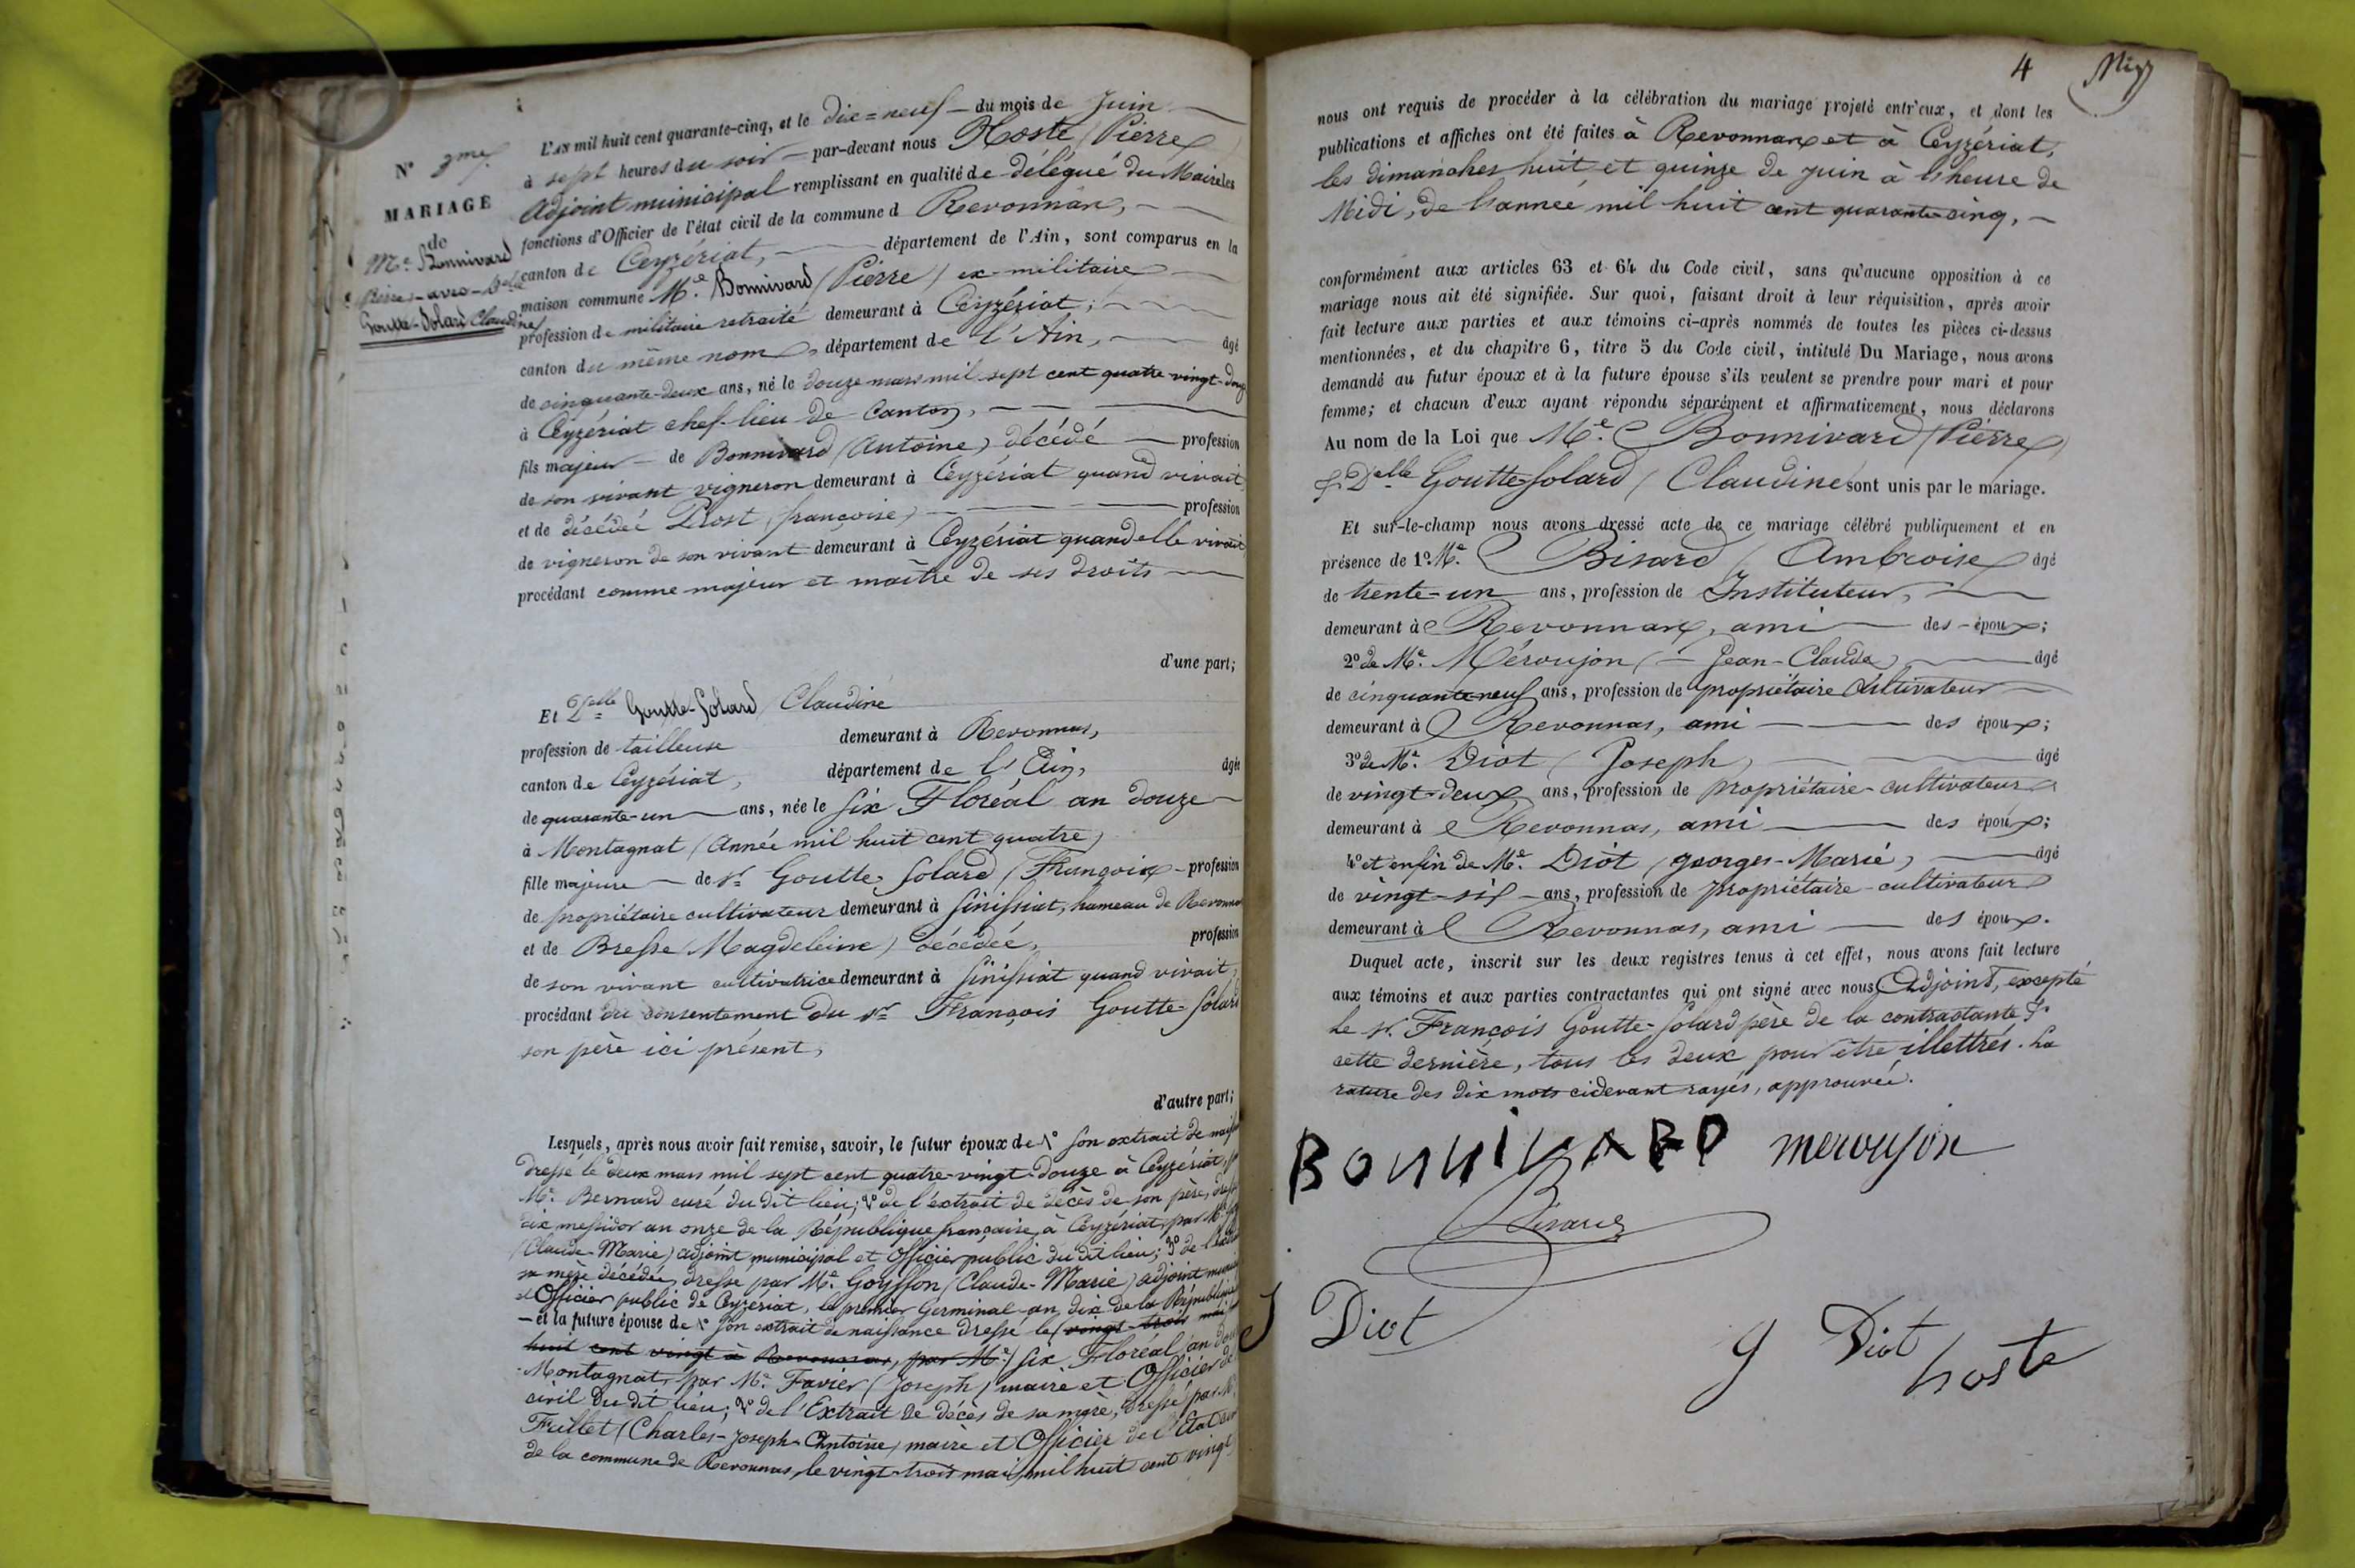 N° 3me
MARIAGE
de
Mr. Bonnivard
Pierre - avec - Delle
Goutte-Solard Claudine
L'AN mil huit cent quarante-cinq, et le dix=neuf — du mois de Juin
à sept heures du soir — par-devant nous Hoste (Pierre)
Adjoint municipal remplissant en qualité de délégué du Maire les
fonctions d'Officier de l'état civil de la commune d Revonnas,
canton de Ceyzériat, — département de l'Ain, sont comparus en la
maison commune Mr. Bonnivard (Pierre) ex-militaire
profession de militaire retraité demeurant à Ceyzériat;
canton du même nom, département de l'Ain, — âgé
de cinquante-deux ans, né le douze mars mil sept cent quatre vingt-douze
à Ceyzériat chef-lieu de Canton,
fils majeur — de Bonnivard (Antoine) décédé — profession
de son vivant vigneron demeurant à Ceyzériat quand vivait
et de décédée Prost (françoise) — profession
de vigneron de son vivant demeurant à Ceyzériat quand elle vivait
procédant comme majeur et maître de ses droits
d'une part;
Et Delle Goutte-Solard Claudine
profession de tailleuse demeurant à Revonnas,
canton de Ceyzériat, département de l'Ain, âgée
de quarante-un — ans, née le six Floréal an douze
à Montagnat (Année mil huit cent quatre)
fille majeure — de Sr Goutte-Solard (François) - profession
de propriétaire cultivateur demeurant à Sinissiat, hameau de Revonnas
et de Bresse (Magdeleine) décédée, profession
de son vivant cultivatrice demeurant à Sinissiat quand vivait,
procédant du consentement du Sr François Goutte-Solard
son père ici présent,
d'autre part;
Lesquels, après nous avoir fait remise, savoir, le futur époux de 1° son extrait de
dressé le deux mars mil sept cent quatre-vingt-douze à Ceyzériat,
Mr. Bernard curé du dit lieu; 2° de l'extrait de décès de son père, dressé
dix messidor an onze de la République française, à Ceyzériat, par Mr
(Claude-Marie) adjoint municipal et Officier public du dit lieu; 3° de
sa mère décédée, dressé par Mr. Goysson (Claude-Marie) adjoint
et Officier public de Ceyzériat, le premier Germinal an dix de la République
— et la future épouse de 1° son extrait de naissance dressé le (vingt-trois mai
huit cent vingt à Revonnas, par Mr.) six Floréal an
Montagnat, par Mr. Favier (Joseph) maire et Officier de
civil du dit lieu; 2° de l'Extrait de décès de sa mère, dressé par Mr
Fuillet (Charles-Joseph-Antoine) maire et Officier de l'État
de la commune de Revonnas, le vingt-trois mai mil huit cent vingt
4
nous ont requis de procéder à la célébration du mariage projeté entr'eux, et dont les
publications et affiches ont été faites à Revonnas et à Ceyzériat,
les dimanches huit et quinze de juin à l'heure de
Midi, de l'année mil huit cent quarante-cinq,
conformément aux articles 63 et 64 du Code civil, sans qu'aucune opposition à ce
mariage nous ait été signifiée. Sur quoi, faisant droit à leur réquisition, après avoir
fait lecture aux parties et aux témoins ci-après nommés de toutes les pièces ci-dessus
mentionnées, et du chapitre 6, titre 5 du Code civil, intitulé Du Mariage, nous avons
demandé au futur époux et à la future épouse s'ils veulent se prendre pour mari et pour
femme; et chacun d'eux ayant répondu séparément et affirmativement, nous déclarons
Au nom de la Loi que Mr. Bonnivard (Pierre)
& Delle Goutte-Solard (Claudine sont unis par le mariage.
Et sur-le-champ nous avons dressé acte de ce mariage célébré publiquement et en
présence de 1° Mr. Bisard (Ambroise) âgé
de trente-un ans, profession de Instituteur,
demeurant à Revonnas, ami — des époux;
2° de Mr. Méroujon (Jean-Claude) — âgé
de cinquante-neuf ans, profession de propriétaire cultivateur
demeurant à Revonnas, ami — des époux;
3° de Mr. Diot (Joseph) — âgé
de vingt-deux ans, profession de propriétaire-cultivateur
demeurant à Revonnas, ami — des époux;
4° et enfin de Mr. Diot (georges-Marie) — âgé
de vingt-six — ans, profession de propriétaire-cultivateur
demeurant à Revonnas, ami — des époux.
Duquel acte, inscrit sur les deux registres tenus à cet effet, nous avons fait lecture
aux témoins et aux parties contractantes qui ont signé avec nous Adjoint, excepté
le Sr. François Goutte-Solard père de la contractante &
cette dernière, tous les deux pour être illettrés. La
rature des dix mots cidevant rayés, approuvée.
BONNIVARD merousjon
Bisard
J Diot
g Diot
hoste